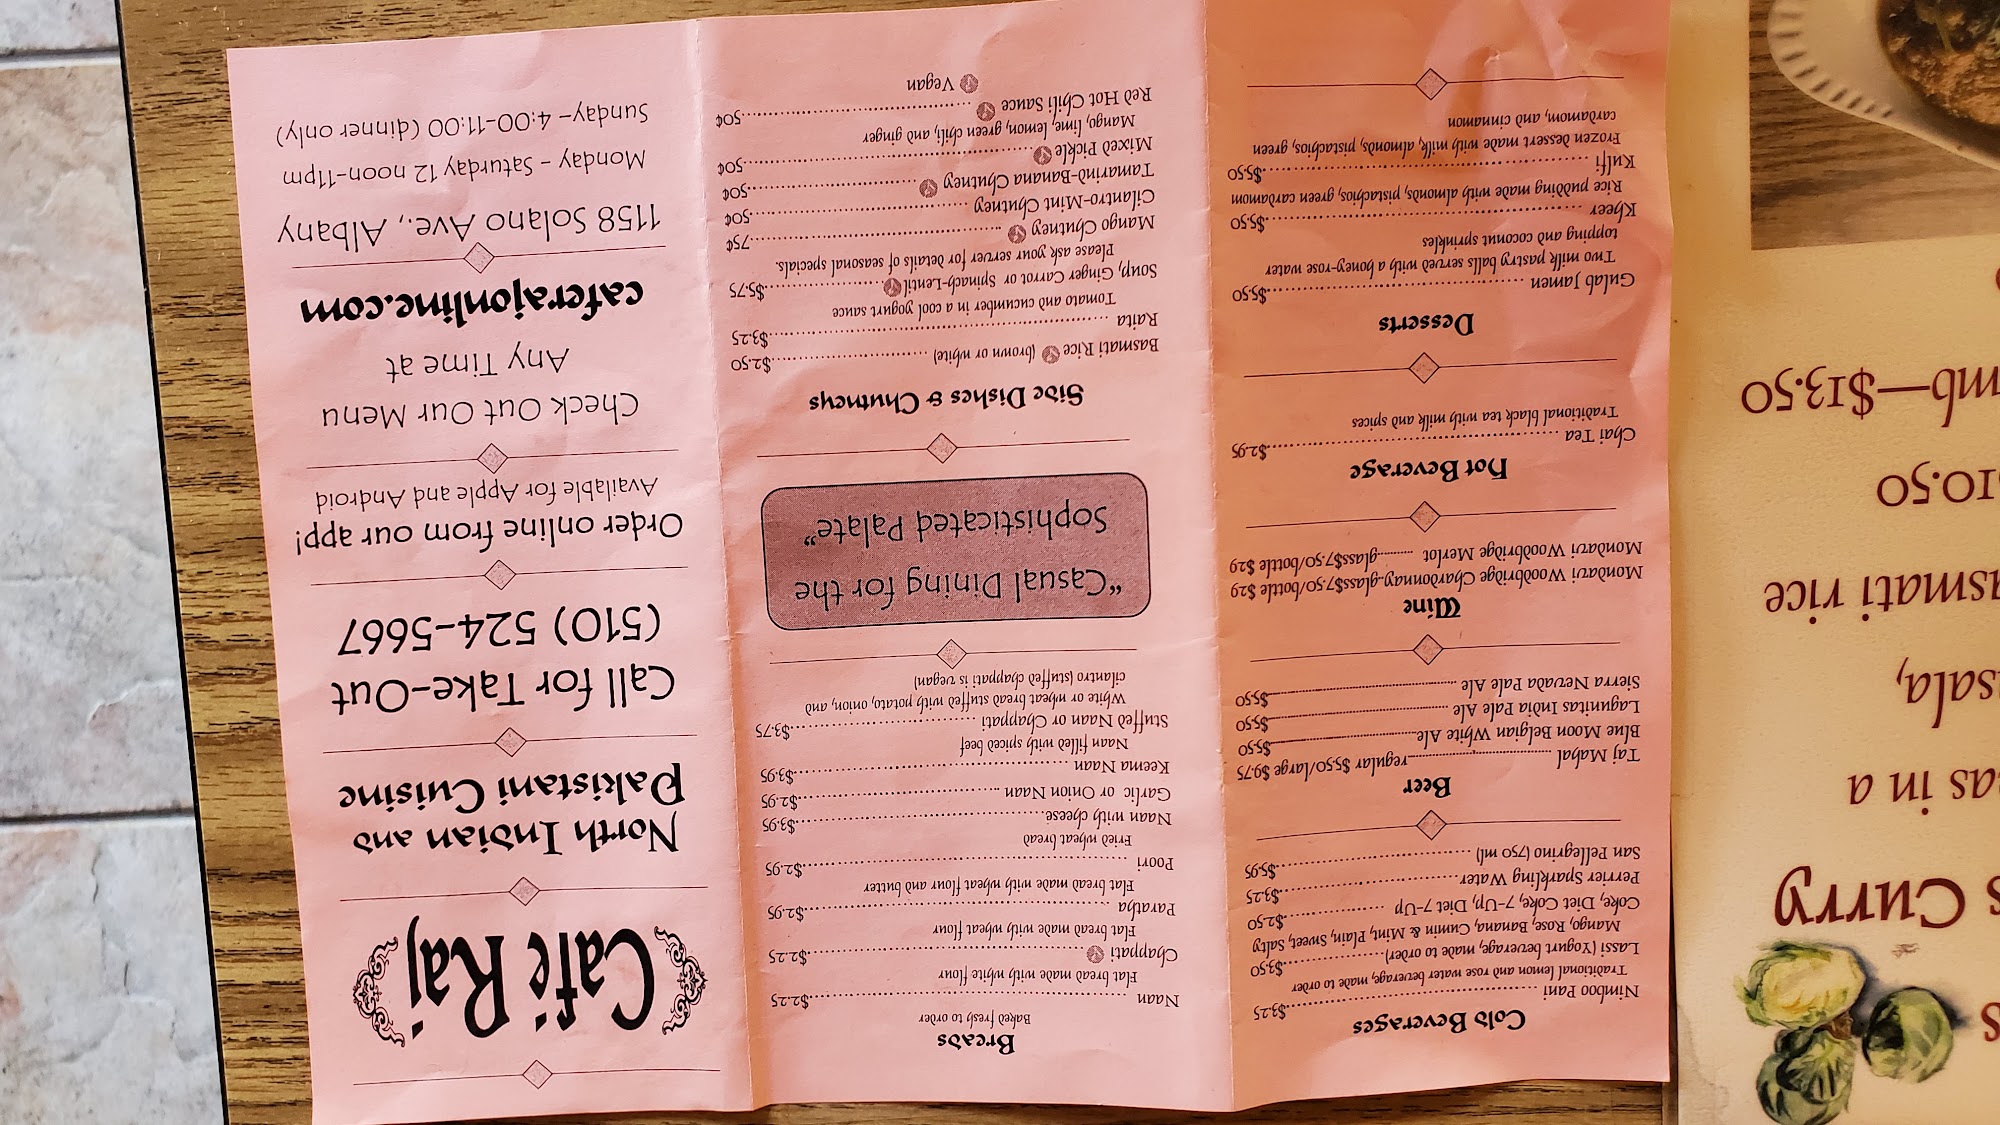 s
s Curry
as in a
sala,
asmati rice
10.50
mb—$13.50
Cold Beverages
Nimboo Pani ........ $3.25
Traditional lemon and rose water beverage, made to order
Lassi (Yogurt beverage, made to order) ........ $3.50
Mango, Rose, Banana, Cumin & Mint, Plain, Sweet, Salty
Coke, Diet Coke, 7-Up, Diet 7-Up ........ $2.50
Perrier Sparkling Water ........ $3.25
San Pellegrino (750 ml) ........ $5.95
Beer
Taj Mahal ........ regular $5.50/large $9.75
Blue Moon Belgian White Ale ........ $5.50
Lagunitas India Pale Ale ........ $5.50
Sierra Nevada Pale Ale ........ $5.50
Wine
Mondavi Woodbridge Chardonnay..glass$7.50/bottle $29
Mondavi Woodbridge Merlot ........glass$7.50/bottle $29
Hot Beverage
Chai Tea ........ $2.95
Traditional black tea with milk and spices
Desserts
Gulab Jamen ........ $5.50
Two milk pastry balls served with a honey-rose water
topping and coconut sprinkles
Kheer ........ $5.50
Rice pudding made with almonds, pistachios, green cardamom
Kulfi ........ $5.50
Frozen dessert made with milk, almonds, pistachios, green
cardamom, and cinnamon
Breads
Baked fresh to order
Naan ........ $2.25
Flat bread made with white flour
Chappati ........ $2.25
Flat bread made with wheat flour
Paratha ........ $2.95
Flat bread made with wheat flour and butter
Poori ........ $2.95
Fried wheat bread
Naan with cheese ........ $3.95
Garlic or Onion Naan ........ $2.95
Keema Naan ........ $3.95
Naan filled with spiced beef
Stuffed Naan or Chappati ........ $3.75
White or wheat bread stuffed with potato, onion, and
cilantro (stuffed chappati is vegan)
"Casual Dining for the
Sophisticated Palate"
Side Dishes & Chutneys
Basmati Rice (brown or white) ........ $2.50
Raita ........ $3.25
Tomato and cucumber in a cool yogurt sauce
Soup, Ginger Carrot or Spinach-Lentil ........ $5.75
Please ask your server for details of seasonal specials.
Mango Chutney ........ 75¢
Cilantro-Mint Chutney ........ 50¢
Tamarind-Banana Chutney ........ 50¢
Mixed Pickle ........ 50¢
Mango, lime, lemon, green chili, and ginger
Red Hot Chili Sauce ........ 50¢
Vegan
Café Raj
North Indian and
Pakistani Cuisine
Call for Take-Out
(510) 524-5667
Order online from our app!
Available for Apple and Android
Check Out Our Menu
Any Time at
caferajonline.com
1158 Solano Ave., Albany
Monday - Saturday 12 noon-11pm
Sunday - 4:00-11:00 (dinner only)